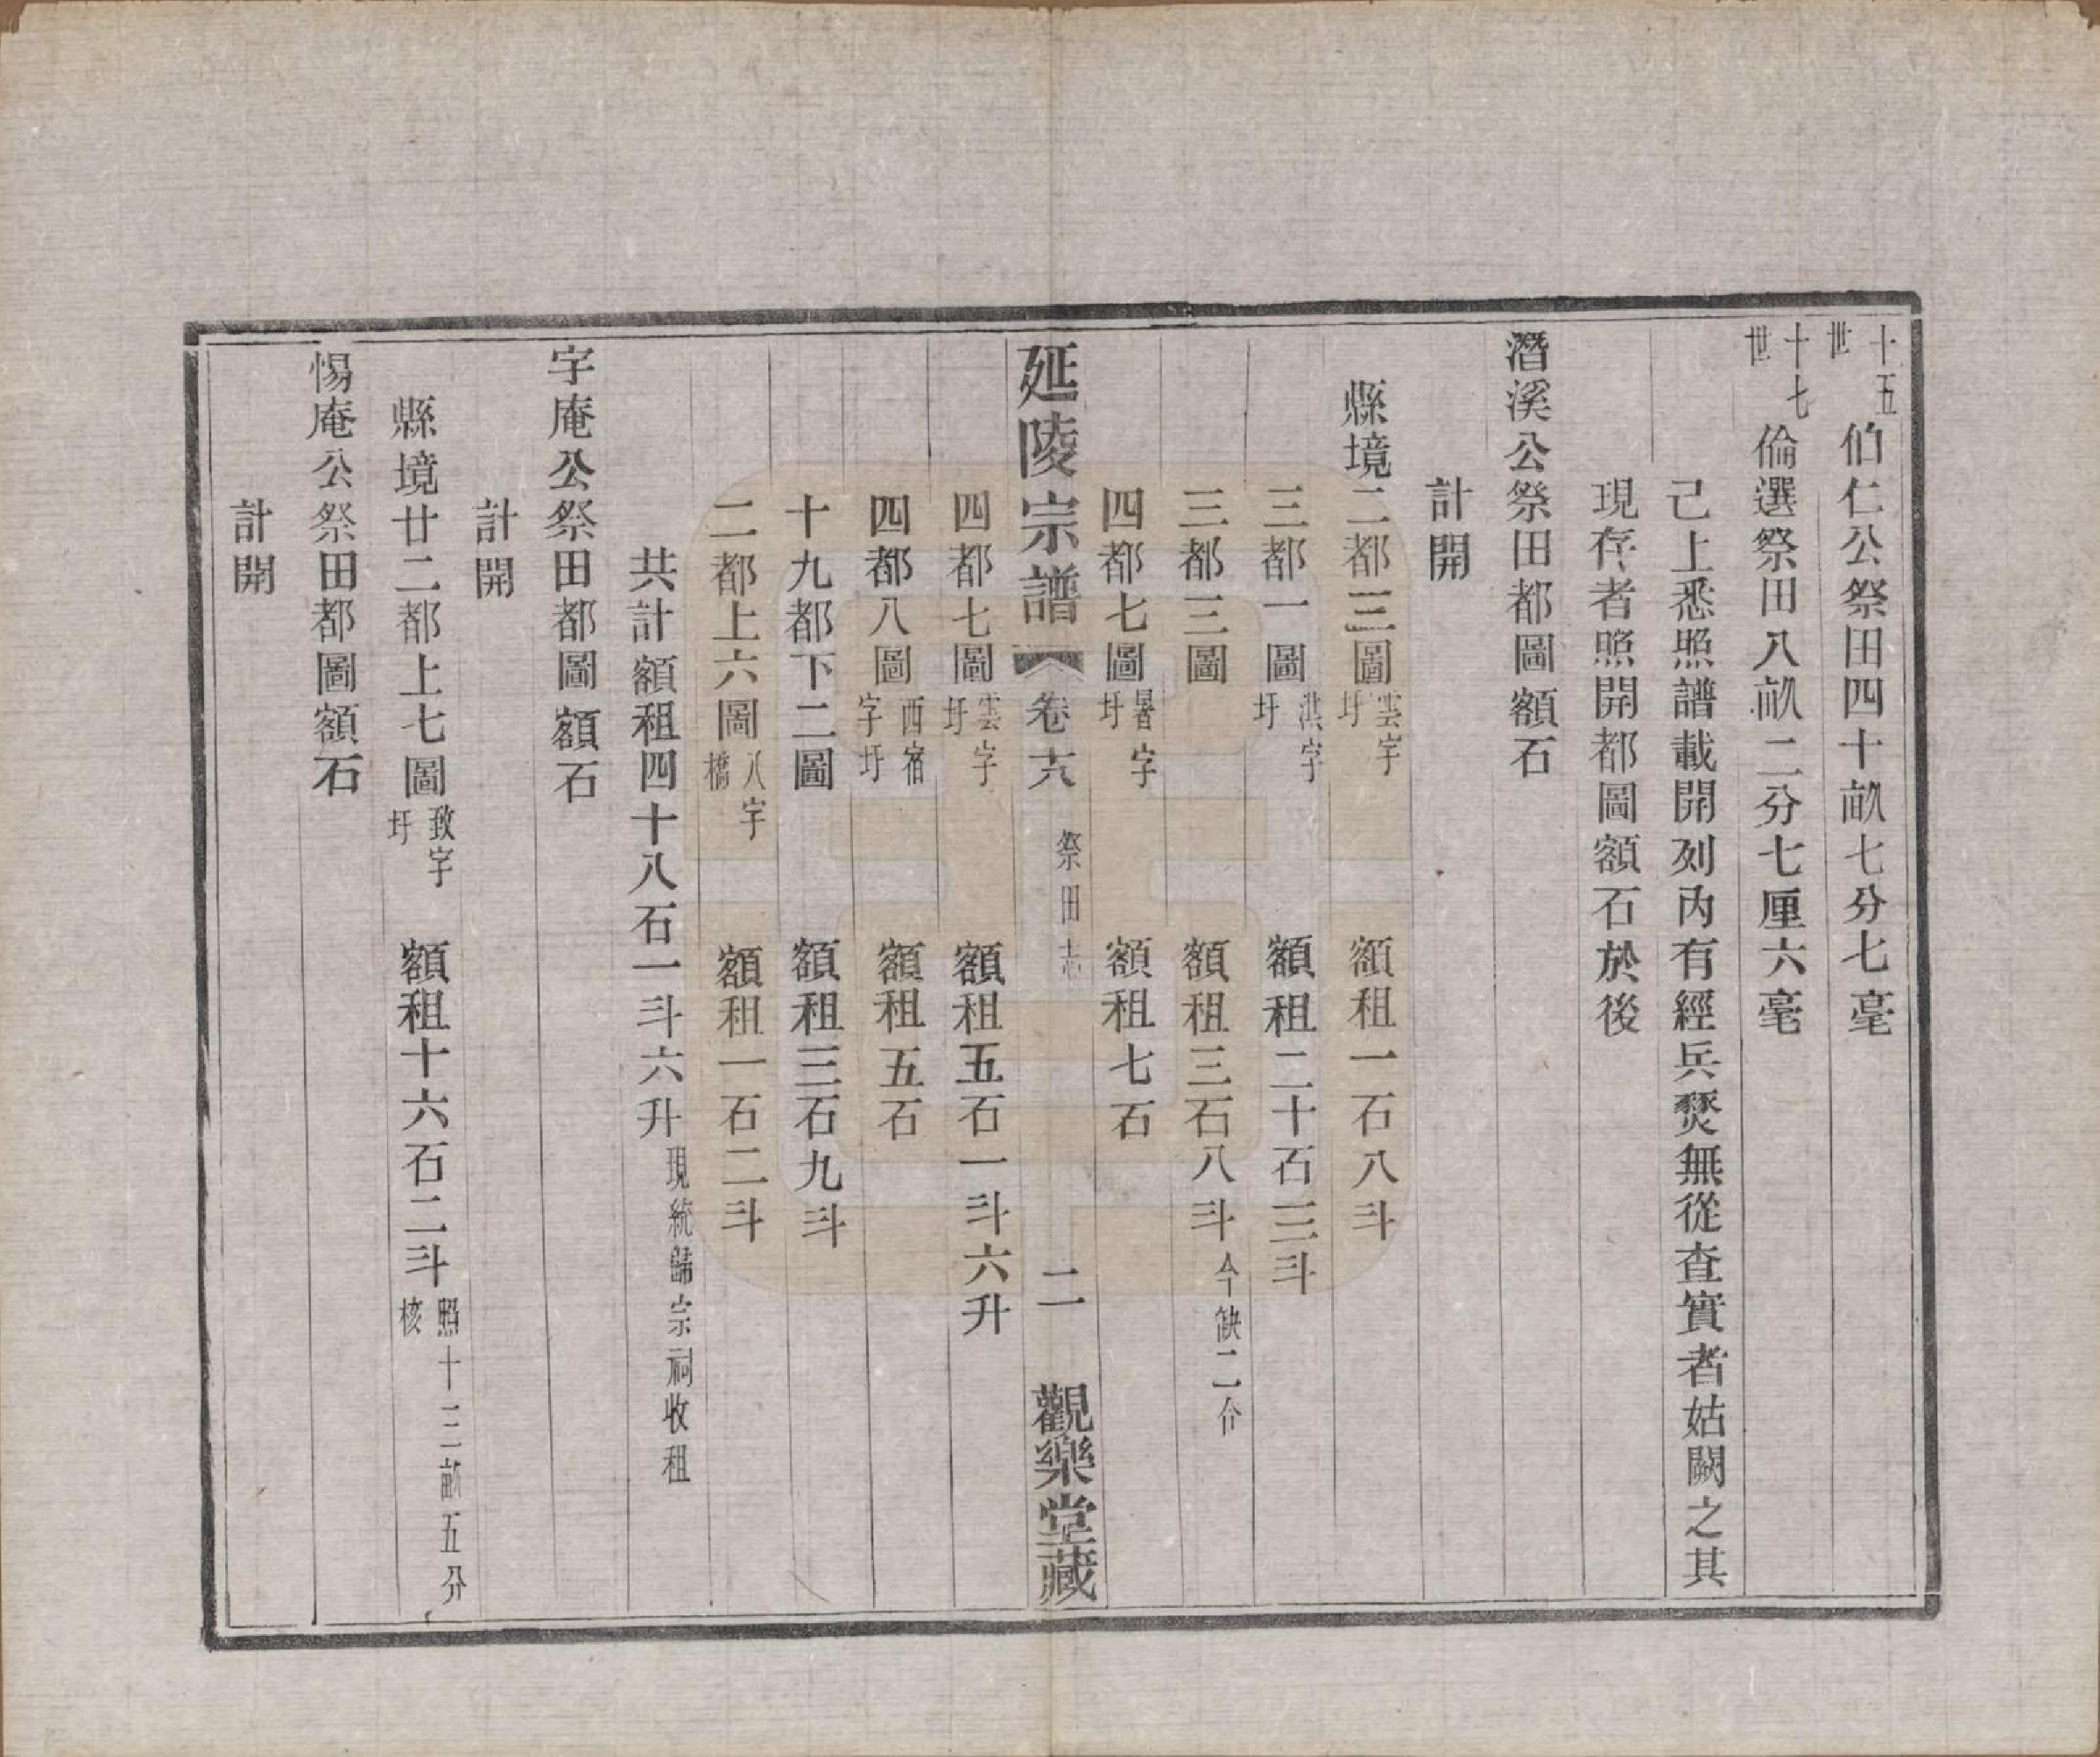 十五世伯仁公祭田四十畝七分七毫
十七世倫選祭田八畝二分七厘六毫
己上悉照譜載開列內有經兵燹無從查實者姑闕之其
現存者照開都圖額石於後
潛溪公祭田都圖額石
計開
縣境二都三圖雲字圩 額租一石八斗
三都一圖洪字圩 額租二十石三斗
三都三圖 額租三石八斗今缺二仚
四都七圖暑字圩 額租七石
延陵宗譜 卷十六 祭田志 二 觀樂堂藏
四都七圖雲字圩 額租五石一斗六升
四都八圖西宿字圩 額租五石
十九都下二圖 額租三石九斗
二都上六圖八字橋 額租一石二斗
共計額租四十八石一斗六升現統歸宗祠收租
字庵公祭田都圖額石
計開
縣境廿二都上七圖致字圩 額租十六石二斗照十三畝五分核
惕庵公祭田都圖額石
計開